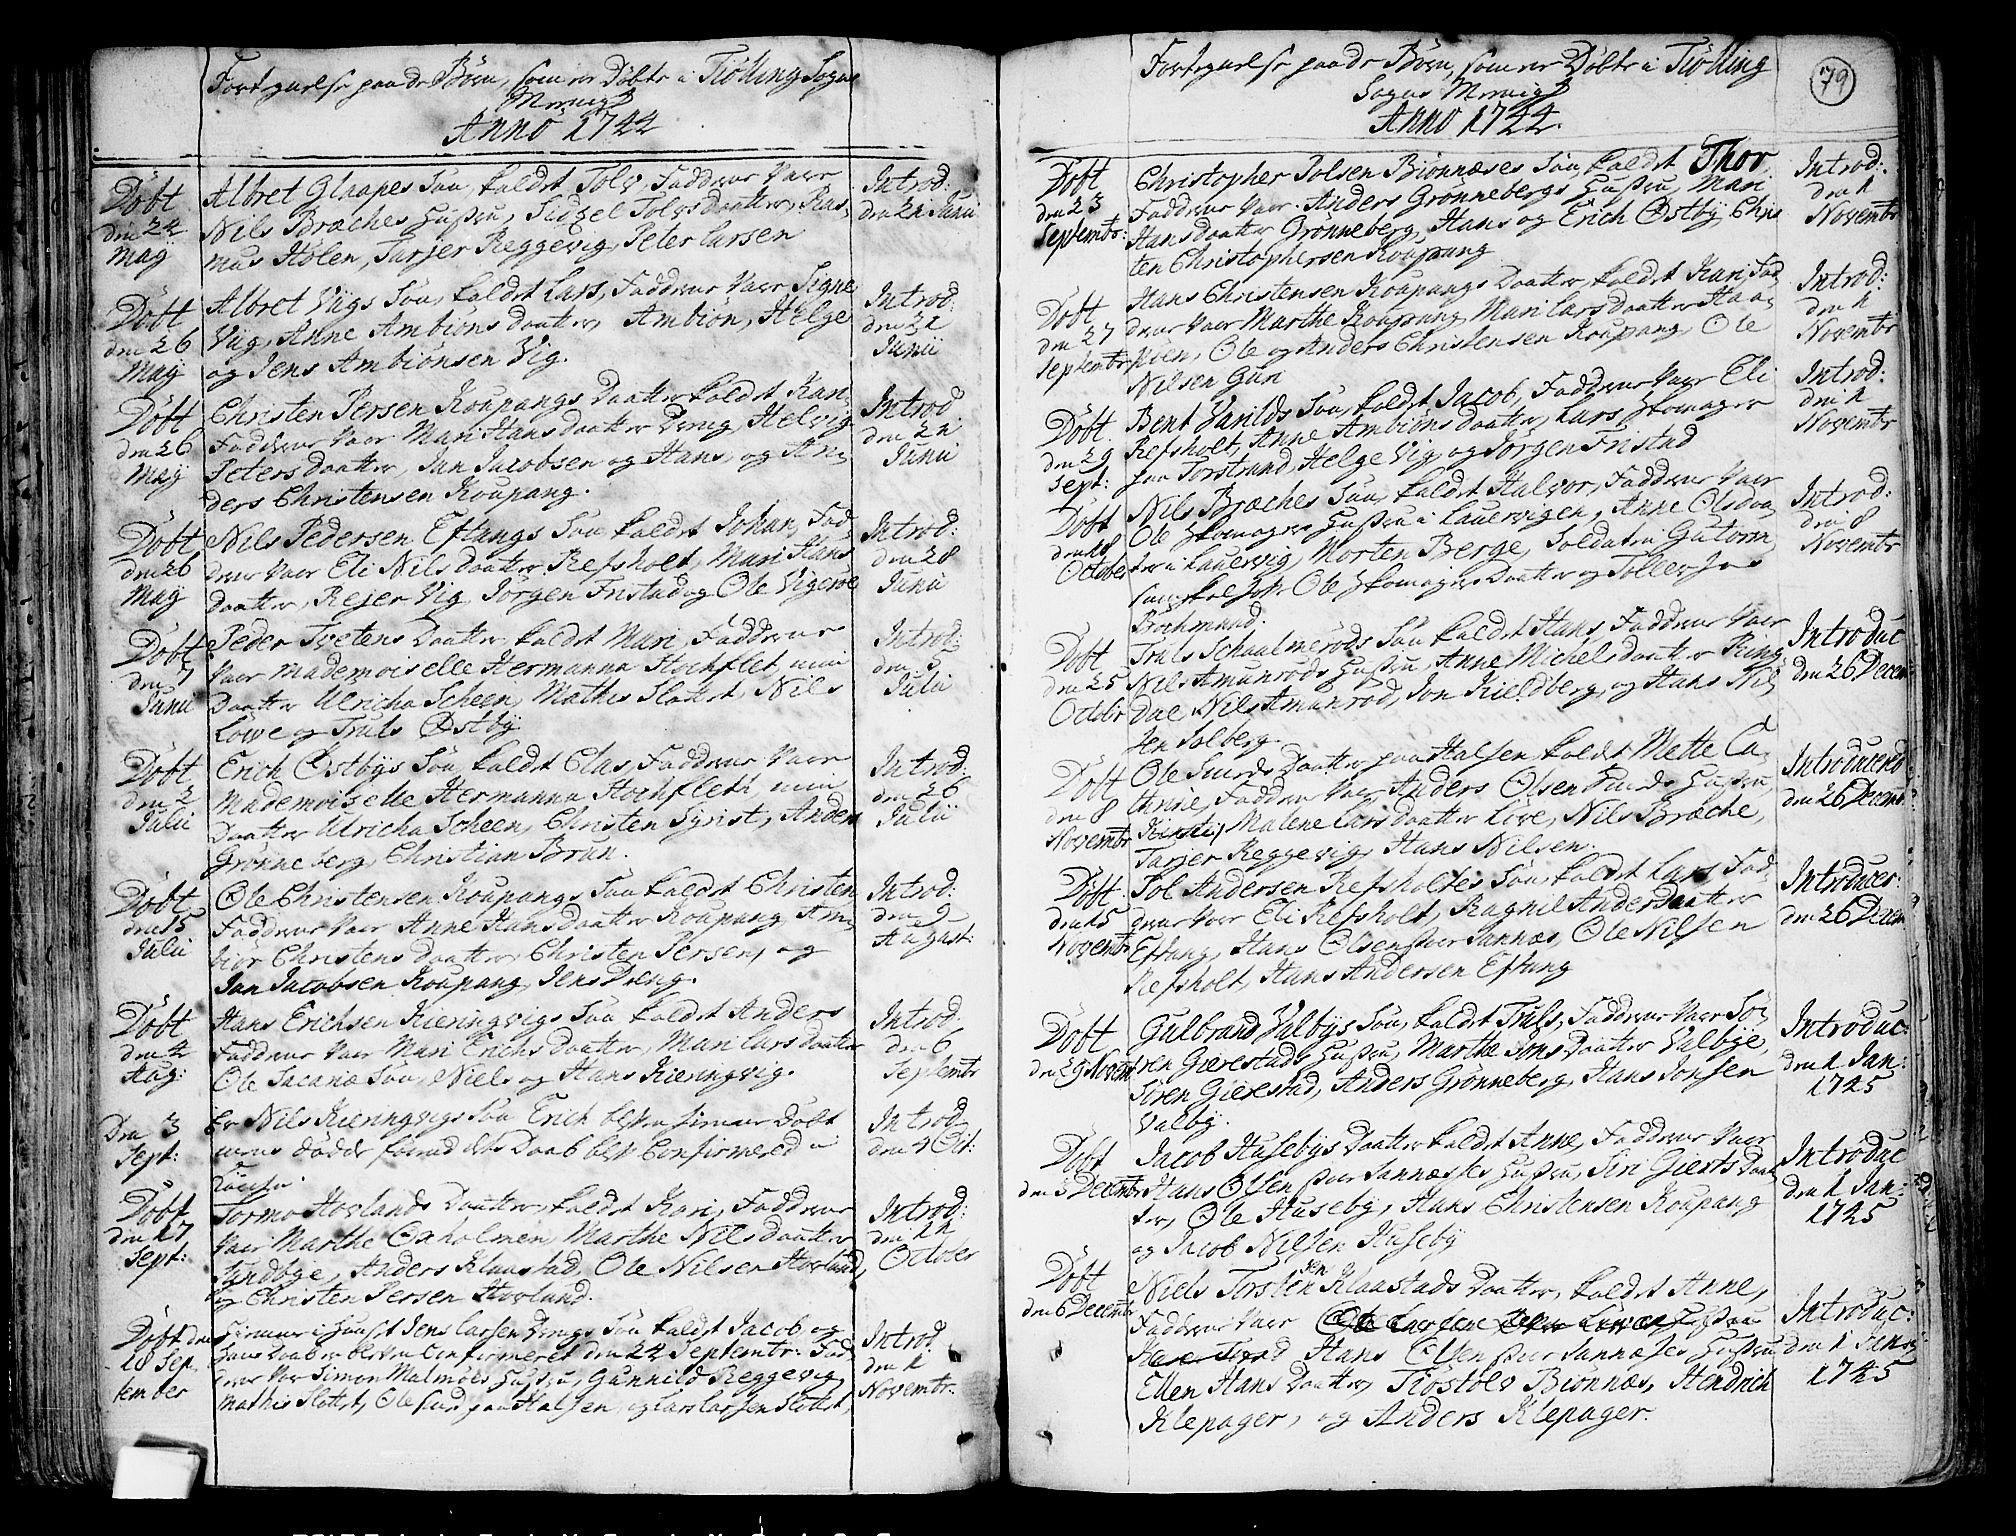 Fortegnelse paa de Börn, som er Döbte i Tiölling Sogns
Menigh
Anno 1744
Döbt
den 24
Maÿ
Albret Glaapes Sön, kaldet Tolv, Faddrene Vaer
Nils Bræches Hustru, Sidzel Tolvsdaatter, Ras-
mus Holen, Tarjer Reggevig, Peter Larsen
Introd:
den 21 Junii
Döbt
den 26
Maÿ
Albret Vigs Sön, kaldet Lars, Faddrene Vaer Signe
Vig, Anne Ambiönsdaatter, Ambiön, Helge
og Jens Ambiönsen Vig.
Introd:
den 21
Junii
Döbt
den 26
Maÿ
Christen Persen Koupangs Daatter kaldet Kari,
Faddrene Vaer Mari Hansdaatter Vig, Helvig
Petersdaatter, Jan Jacobsen og Hans, og An-
ders Christensen Koupang.
Introd
den 21
Junii
Döbt
den 26
Maÿ
Nils Pedersen Eftangs Sön kaldet Johan, Fad
drene Vaer Eli Nilsdaatter Refsholt, Mari Hans
daatter, Rejer Vig, Jörgen Fristad og Ole Vigerie
Introd:
den 28
Junii
Döbt
den 7
Junii
Peder Tvetens Daatter kaldet Mari, Faddrene
Vaer Mademoiselle Hermanna Hochflet, min
Daatter Ulricha Scheen, Mathis Slottet, Nils
Löwe og Truls Østbÿ
Introd:
den 5
Julii
Döbt
den 2
Julii
Erich Østbÿs Sön kaldet Clas, Faddrene Vaer
Mademoiselle Hermanna Hochfleth, min
Daatter Ulricha Scheen, Christen Syrist, Anders
Grönneberg, Christian Brun.
Introd:
den 26
Julii
Döbt
den 15
Julii
Ole Christensen Koupangs Sön kaldet Christen
Faddrene Vaer Anne Hansdaatter Koupang, Am-
biör Christensdaatter, Christen Persen, og
Jan Jacobsen Koupang, Jens Vreng.
Introd:
den 9
August:
Döbt
den 2
Aug:
Hans Erichsen Kieringvigs Sön kaldet Anders
Faddrene Vaer Mari Erichsdaatter, Mari Larsdaatter
Ole Sacariæ Sön, Niels og Hans Kieringvig.
Introd:
den 6
Septembr
Den 3
Sept:
Er Nils Kieringvigs Sön Erich bleven hiemme Döbt
mens dödde förend dets Daab blev Confirmered i
Kircken.
Introd
den 4 Oct:
Döbt
den 27
Sept:
Tormo Hovlands Daatter, kaldet Kari, Faddrene
Vaer Marthe Oxholmen, Marthe Nilsdaatter
Sundbye, Anders Klaastad, Ole Nilsen Hovland,
og Christen Persen Hovland.
Introd:
den 11
October
Döbt den
18 Sep
tember
Hiemme i Huuset Jens Larsen Vrengs Sön kaldet Jacob, og
hans Daab er bleven Confirmeret den 24 Septembr. Fad
drene Var Simon Malmöes Hustru, Gunnild Reggevig
Mathis Slottet, Ole Sund paa Halsen, og Lars Larsen Slottet,
Introd
den 1
Novembr.
Fortegnelse paa de Börn, som er Döbte i Tiölling
Sogns Menigh
Anno 1744.
79
Döbt
den 23
Septembr:
Christopher Tolsen Biönnæses Sön, kaldet Thor,
Faddrene Vaer Anders Grönnebergs Hustru, Mari
Hansdaatter Grönneberg, Hans og Erich Østbÿ, Chris
ten Christophersen Koupang
Introd:
den 1
Novembr
Döbt
den 27
Septembr
Hans Christensen Koupangs Daatter, kaldet Kari, Fad
drene Vaer Marthe Koupang, Mari Larsdaatter Haa-
Ole og Anders Christensen Koupang, Ole
Nilsen Guri
Introd:
den 1
Novembr
Döbt.
den 29
Sept:
Bent Vanilds Sön, kaldet Jacob, Faddrene Vaer Eli
Refsholt, Anne Ambiönsdaatter, Lars Skomager
paa Torstrand, Helge Vig, og Jörgen Fristad
Introd:
den 1
Novembr
Döbt
den 18
October
Nils Bræches Sön, kaldet Halvor, Faddrene Vaer
Ole Skomagers Hustru i Lauervigen, Anne Olsdaa
ter i Lauervig, Morten Berge, Soldaten Gutorm
Ole Skomagers Daatter og Tollev Jens
Bochmand.
Introd:
den 8
Novembr
Döbt
den 25
Octobr
Truls Schaalmerods Sön kaldet Hans, Faddrene Vaer
Nils Amunrods Hustru, Anne Michelsdaatter Ring
dal, Nils Amunrod, Jon Kieldberg, og Hans Nil
sen Solberg.
Introduc
den 26 Decem
Döbt
den 8
Novembr
Ole Sunds Daatter paa Halsen, kaldt Mette Ca-
thrine, Faddrene Vaer Anders Olsen Sunds Hustru,
Kirsti, Malene Larsdaatter Löve, Nils Bræche,
Tarjer Reggevig, Hans Nilsen.
Introducered
den 26 Decembr.
Döbt.
den 15
Novembr
Tol Andersen Refsholtes Sön, kaldet Lars Fad-
drene Vaer Eli Refsholt, Ragnil Andersdaatter
Eftang, Hans Olsen over Sannæs, Ole Nilsen
Refsholt, Hans Andersen Eftang
Introducer:
den 26 Decem
Döbt
den 29 Novem
Gulbrand Valbÿes Sön, kaldet Truls, Faddrene Vaer Sö-
ren Gierestads Hustru, Marthe Jonsdaatter Valbÿe,
Sören Gierestad, Anders Grönneberg, Hans Jonsen
Valbÿ.
Introduc:
den 1 Jan:
1745
Döbt
den 3 Decembr
Jacob Husebÿs Daatter kaldet Anne, Faddrene Vaer
Hans Olsen over Sannæses Hustru, Siri Giertsdaat
ter, Ole Husebÿ, Hans Christensen Koupang
og Jacob Nilsen Husebÿ
Introduc
den 1 Jan:
1745
Döbt
den 6 Decembr
Niels Torstensen Klaastads Daatter, kaldet Anne,
Faddrene Vaer
Hans Olsen over Sannæses Hustru
Ellen Hansdaatter, Tiostolv Bionnæs, Hendrich
Klepager, og Anders Klepager.
Introduc:
den 1 Januarij
1745